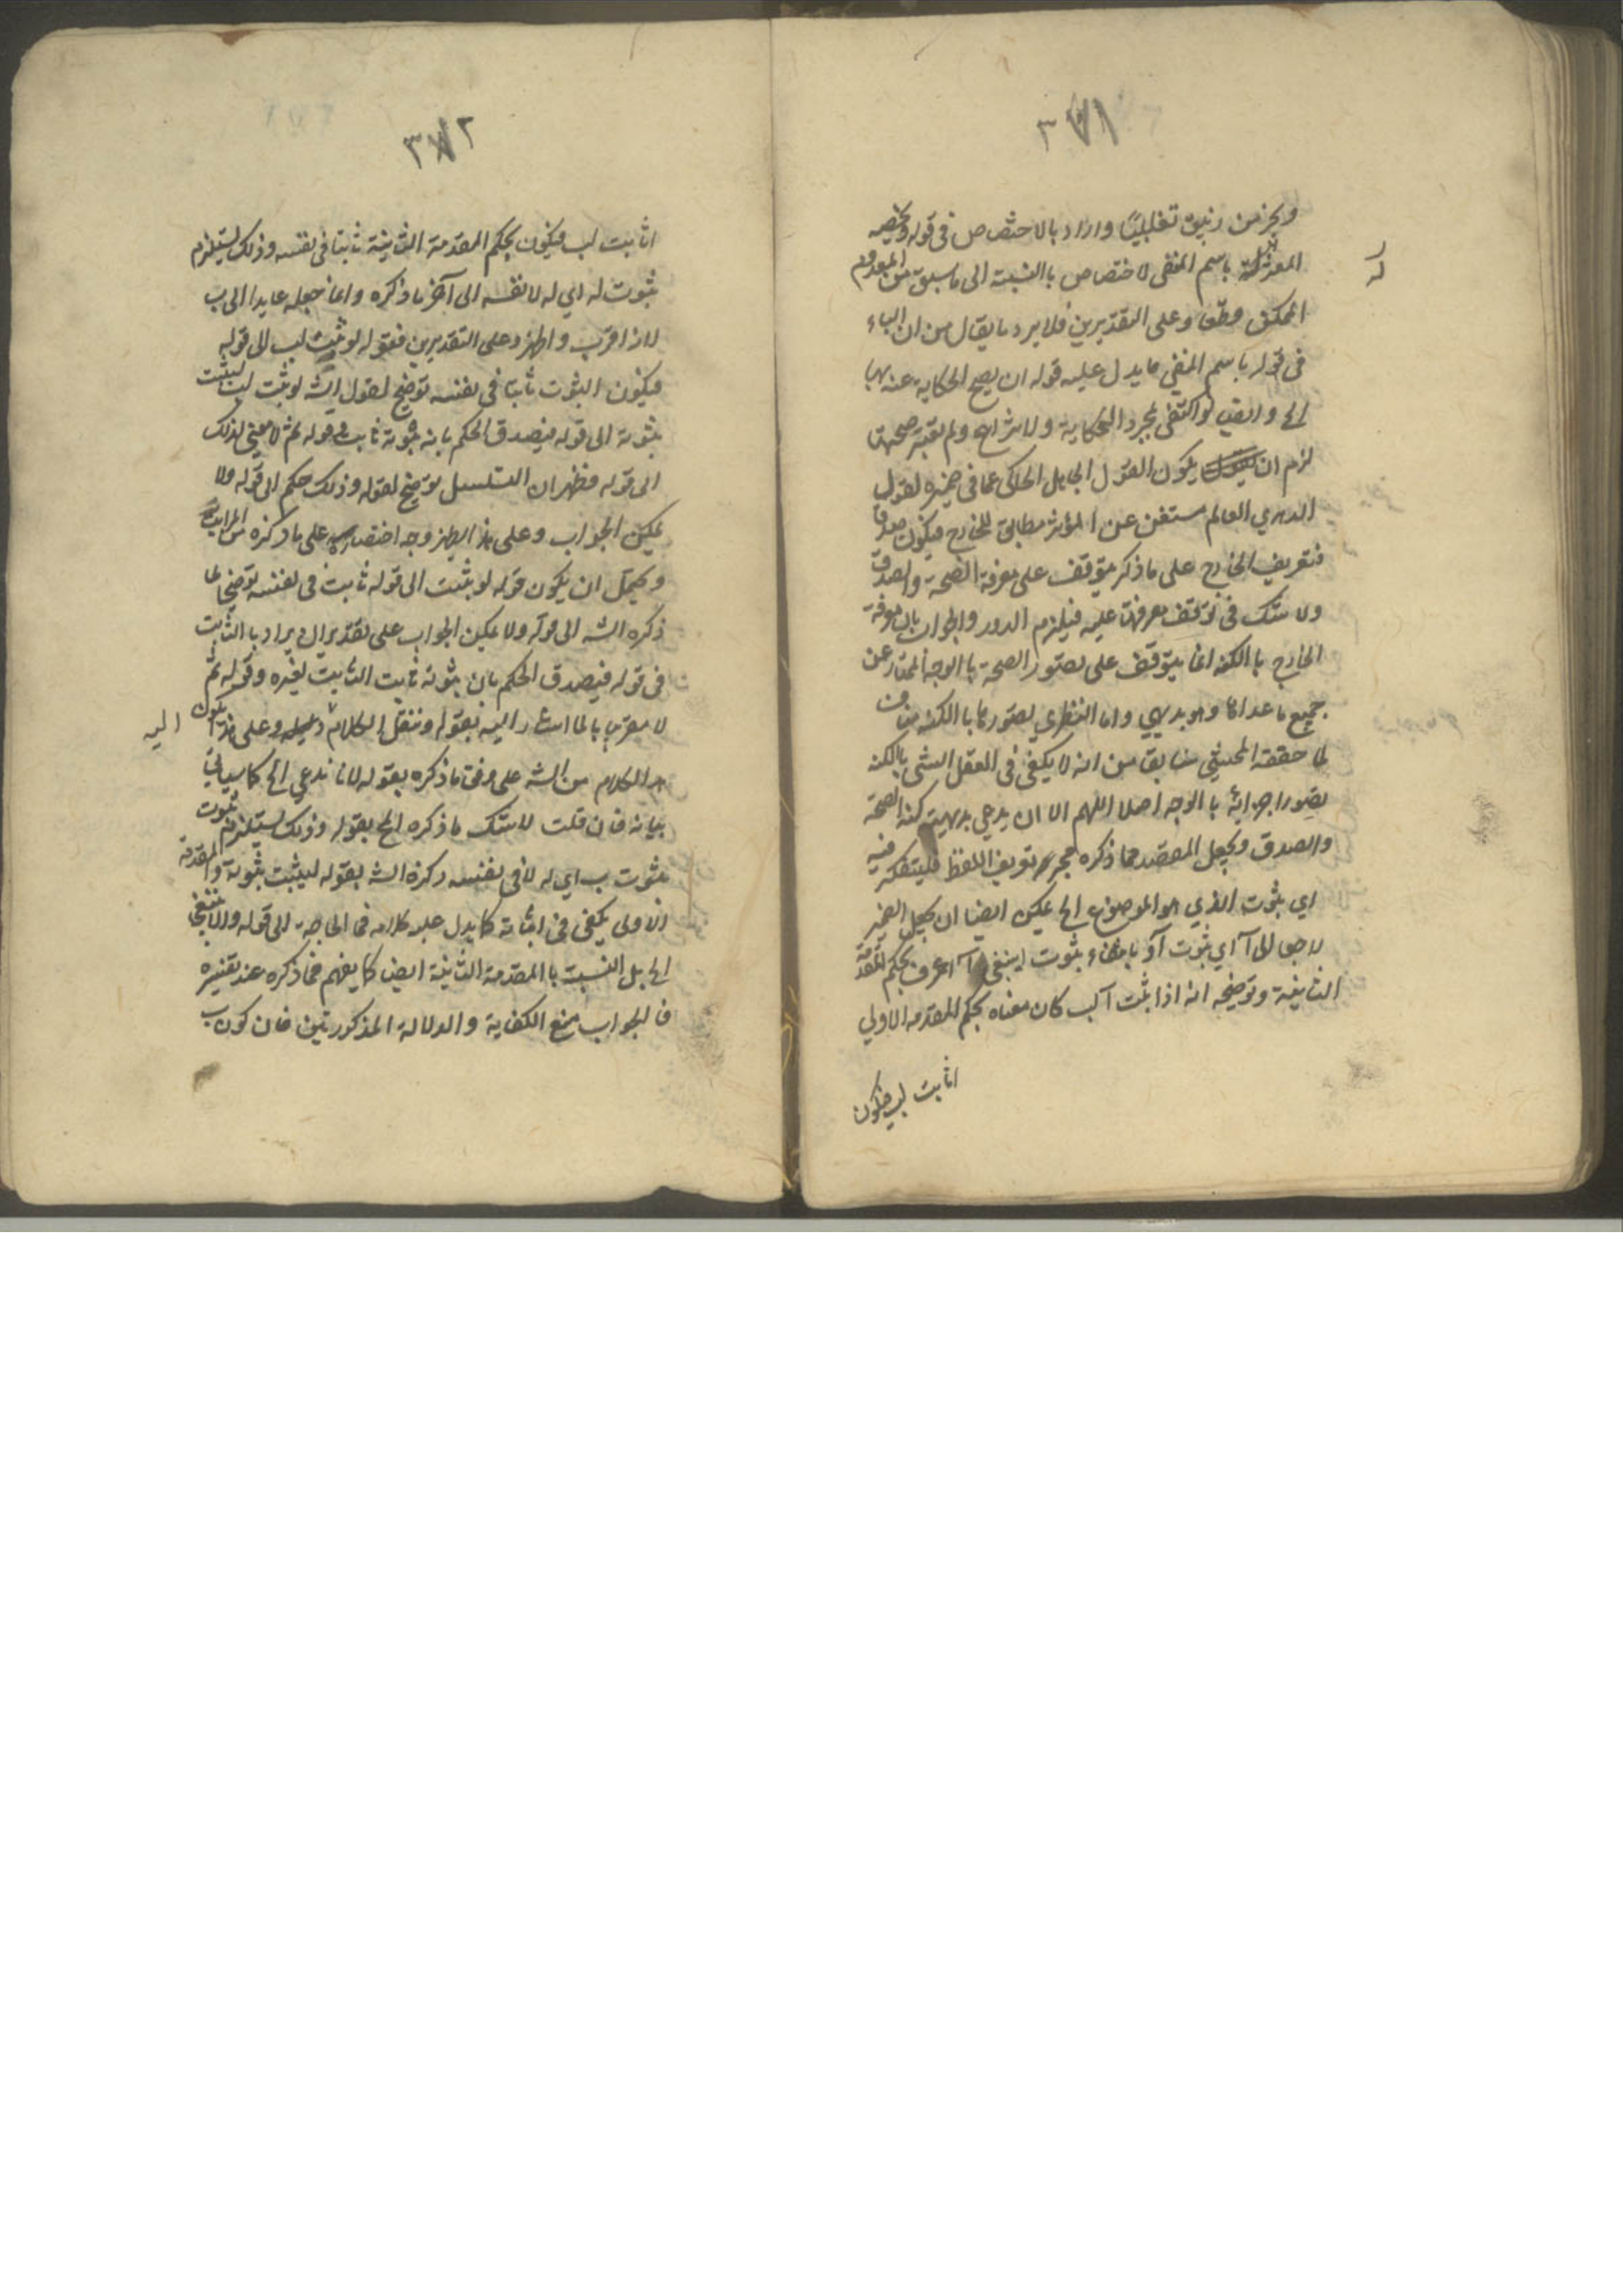 ٣٧١
وبحر من زيبق تغليبا واراد بالاختصاص في قوله وتخصيصه
المعتزلة باسم المنفي الاختصاص بالنسبة الى ما سبق من المعدوم
الممكن وعلى التقديرين فلا يرد ما يقال من ان الباء
في قوله باسم المنفي ما يدل عليه قوله ان يصح الحكاية عنه بها
الخ وايضا لو اكتفى بمجرد الحكاية ولم يعتبر صحتها
لزم ان يكون القول الجاهل الحاكي عما في ضميره لقول
الدهري العالم مستغن عن المؤثر مطابق للخارج فيكون صدقا
فتعريف الخارج على ما ذكر يتوقف على معرفة الصحة والصدق
ولا شك في توقف معرفتها عليه فيلزم الدور والجواب بان معرفة
الخارج بالكنه انما يتوقف على تصور الصحة بالوجه الممتاز عن
جميع ما عداها وهو بديهي واما النظري تصورها بالكنه
لما حققه المحشي سابقا من انه لا يكفي في العقل الشئ بالكنه
تصور اجزائه بالوجه اصلا اللهم الا ان يدعي بديهية كنه الصحة
والصدق ويجعل المقصد مما ذكره مجرد تعريف اللفظ فليتفكر فيه
اي ثبوت الذي هو الموضوع الخ يمكن ايضا ان يجعل الضمير
راجعا الى آ اي ثبوت آ بحكم المقدمة
الثانية وتوضيحه انه اذا ثبت آ لب كان معناه بحكم المقدمة الاولى
اثابت لب فيكون
٣٧٢
اثابت لب فيكون بحكم المقدمة الثانية ثابتا في نفسه وذلك يستلزم
ثبوت له اي له لا نفسه الى آخر ما ذكره وانما جعله عايدا الى ب
لانه اقرب واظهر وعلى التقديرين فقوله لو ثبت لب الى قوله
فيكون الثبوت ثابتا في نفسه توضيح لقول الشه لو ثبت لب ليثبت
ثبوته الى قوله فيصدق الحكم بانه ثبوته ثابت وقوله ثم لا معنى لذلك
الى قوله فظهر ان التسلسل توضيح لقوله وذلك حكم الى قوله ولا
يمكن الجواب وعلى هذا يظهر وجه اختصاره على ما ذكره من المراتب
ويحتمل ان يكون قوله لو ثبت الى قوله ثابت في نفسه توضيحا لما
ذكره الشه الى قوله ولا يمكن الجواب على تقدير ان يراد بالثابت
في قوله فيصدق الحكم بان ثبوته ثابت الثابت لغيره وقوله ثم
لا معنى لما اشار اليه بقوله وننقل الكلام اليه وعلى هذا يكون
الكلام من الشه على وفق ما ذكره بقوله لانا ندعي الخ كما سياتي
بيانه فان قلت لا شك ما ذكره الخ بقوله وذلك يستلزم ثبوت
ثبوت ب اي له لا في نفسه ذكره الشه بقوله ليثبت ثبوته والمقدمة
الاولى يكفي في اثباته كما يدل عليه كلامه فما الحاجة الى قوله
الخ بل النسبت بالمقدمة الثانية ايضا كما يفهم مما ذكره عند تفسيره
فالجواب منع الكفاية والدلالة المذكورتين فان كون ب